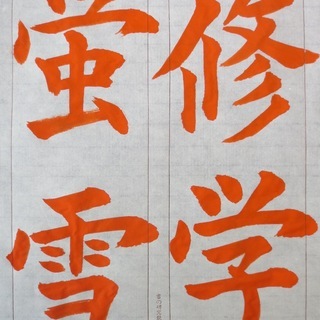 修学
蛍雪